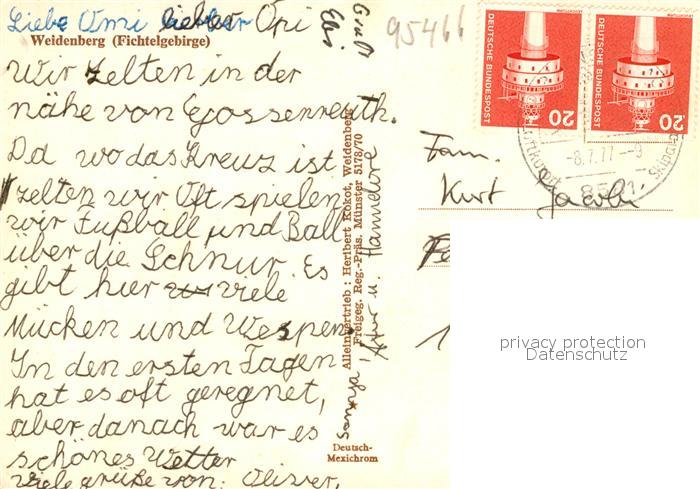 Liebe Omi lieber Opi
Weidenberg (Fichtelgebirge)
Wir zelten in der
nähe von Gossenreuth.
Da wo das Kreuz ist
zelten wir Oft spielen
wir Fußball und Ball
über die Schnur. Es
gibt hier viele
Mücken und Wespen.
In den ersten Tagen
hat es oft geregnet,
aber danach war es
schönes Wetter
viele grüße von: Oliver,
Gruß
95466
Alleinvertrieb: Heribert Kokot, Weidenberg
Freigeg. Reg.-Präs. Münster 5178/70
Deutsch-
Mexichrom
DEUTSCHE BUNDESPOST
20
DEUTSCHE BUNDESPOST
20
-8.7.77--9
Fam.
Kurt Jacobi
privacy protection
Datenschutz